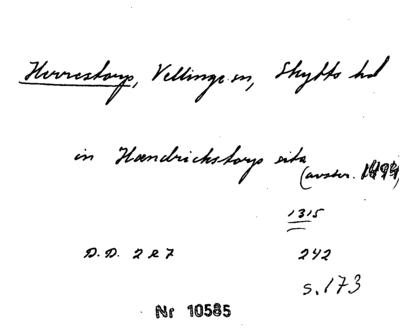 Herrestorp, Vellinge sn, Skytts hd
in Hændrichstorp sita
(avskr. 1494)
1315
D.D. 2 R 7 242
s. 173
Nr 10585